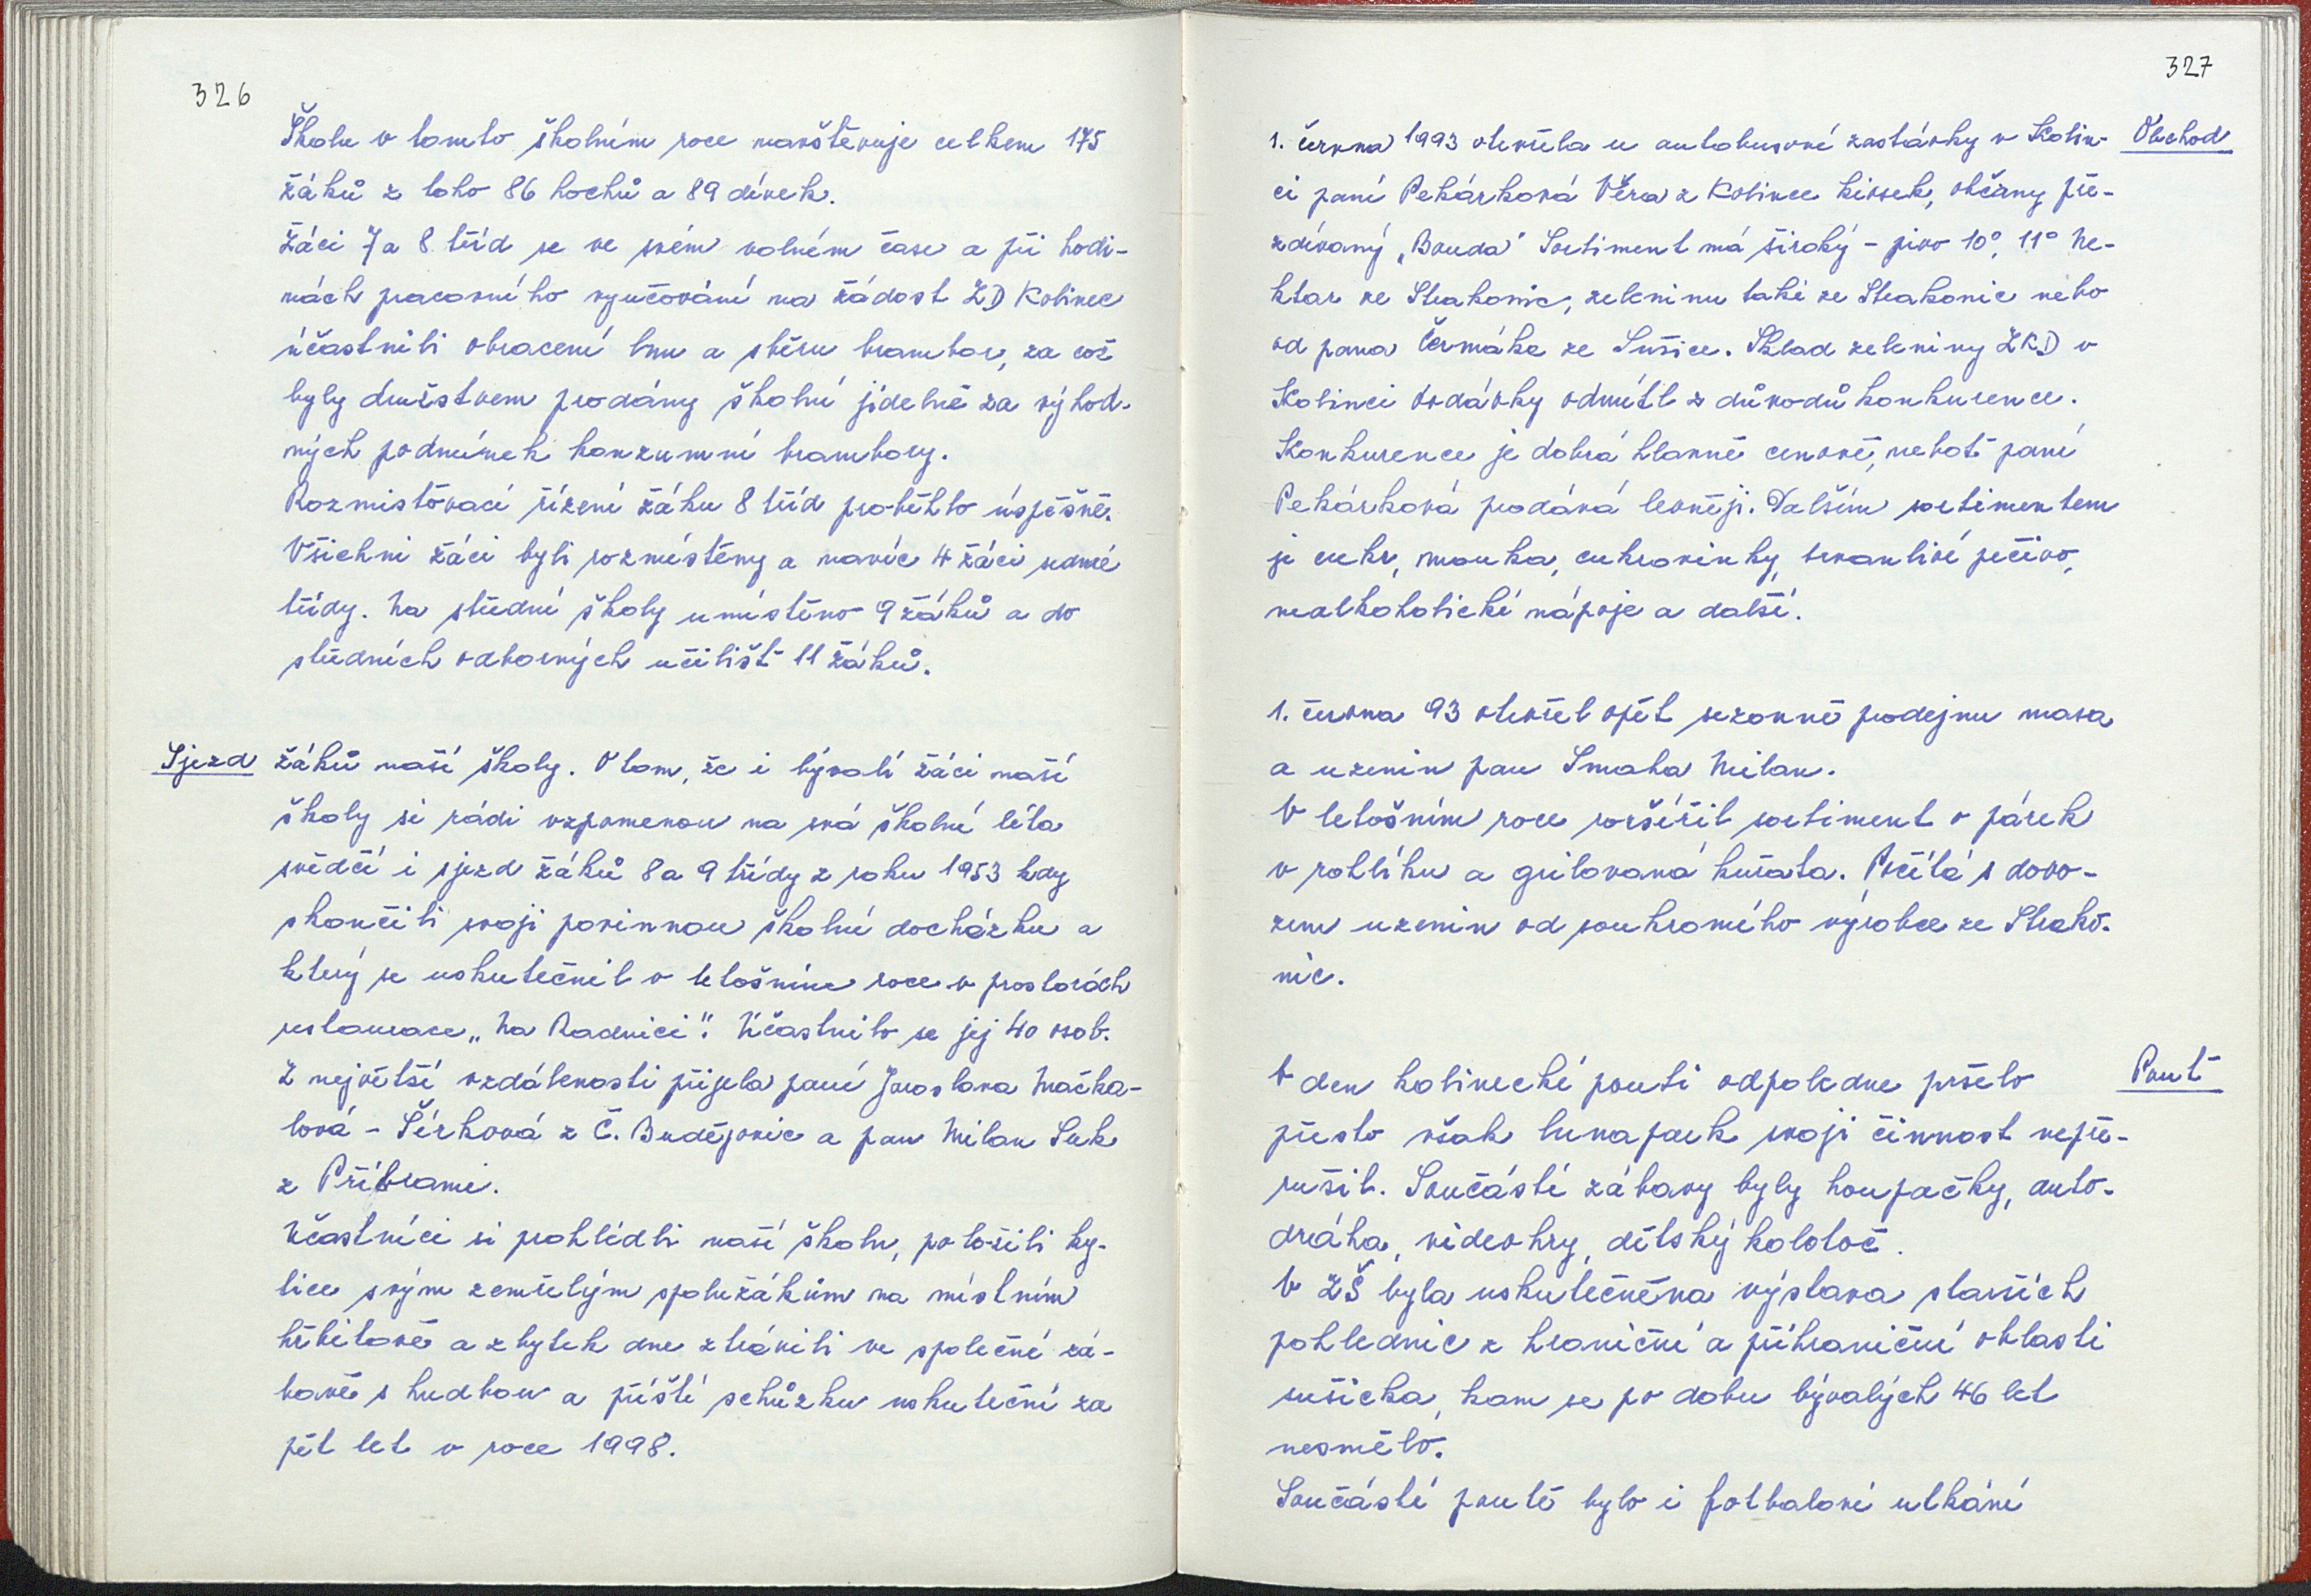 326
Školu v tomto školním roce navštěvuje celkem 175
žáků z toho 86 hochů a 89 dívek.
Žáci 7 a 8 tříd se ve svém volném čase a při hodi-
nách pracovního vyučování na žádost ZD Kolinec
účastnili obracení lnu a sběru brambor, za což
byly družstvem prodány školní jídelně za výhod-
ných podmínek konzumní brambory.
Rozmisťovací řízení žáku 8 tříd proběhlo úspěšně.
Všichni žáci byli rozmístěny a navíc 4 žáci sedmé
třídy. Na střední školy umístěno 9 žáků a do
středních odborných učilišť 11 žáků.
Sjezd žáků naší školy. O tom, že i bývalí žáci naší
školy si rádi vzpomenou na svá školní léta
svědčí i sjezd žáků 8 a 9 třídy z roku 1953 kdy
skončili svoji povinnou školní docházku a
který se uskutečnil v letošním roce v prostorách
restaurace „Na Radnici". Účastnilo se jej 40 osob.
Z největší vzdálenosti přijela paní Jaroslava Mačka-
lová - Šírková z Č. Budějovic a pan Milan Suk
z Příbrami.
Účastníci si prohlédli naší školu, položili ky-
tice svým zemřelým spolužákům na místním
hřbitově a zbytek dne ztrávili ve společné zá-
bavě s hudbou a příští schůzku uskuteční za
pět let v roce 1998.
327
Obchod
1. června 1993 otevřela u autobusové zastávky v Kolin-
ci paní Pekárková Věra z Kolince kiosek, občany pře-
zdívaný „Bouda" Sortiment má široký - pivo 10°, 11° Ne-
ktar ze Strakonic, zeleninu také ze Strakonic nebo
od pana Čermáka ze Sušice. Sklad zeleniny ZKD v
Kolinci dodávky odmítl z důvodů konkurence.
Konkurence je dobrá hlavně cenově, neboť paní
Pekárková prodává levněji. Dalším sortimentem
je cukr, mouka, cukrovinky, trvanlivé pečivo,
nealkoholické nápoje a další.
1. června 93 otevřel opět sezonně prodejnu masa
a uzenin pan Smaha Milan.
V letošním roce rozšířil sortiment o párek
v rohlíku a grilovaná kuřata. Počítá s dovo-
zem uzenin od soukromého výrobce ze Strako-
nic.
Pouť
V den kolinecké pouti odpoledne pršelo
přesto však lunapark svoji činnost nepře-
rušil. Součástí zábavy byly houpačky, auto-
dráha, videohry, dětský kolotoč.
V ZŠ byla uskutečněna výstava starších
pohlednic z hraniční a příhraniční oblasti
sušicka, kam se po dobu bývalých 46 let
nesmělo.
Součástí poutě bylo i fotbalové utkání